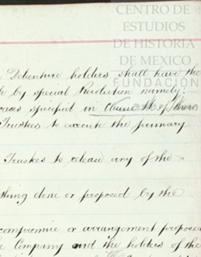 CENTRO DE
ESTUDIOS
DE HISTORIA
DE MEXICO
FUNDACIÓN
Debenture holders shall have the
by special Resolution namely:
specified in Clause of these
Trustees to execute the primary
Trustees to release any of the
thing done or proposed by the
compromise or arrangement proposed
Company and the holders of the